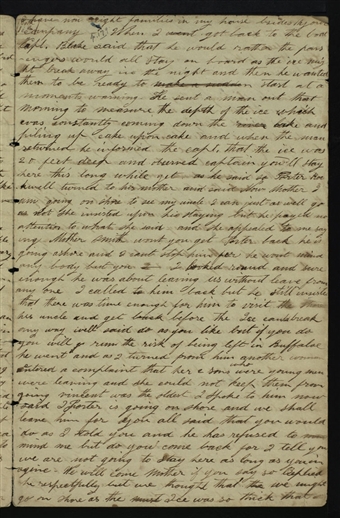 have now eight families in my house besides your
Company When I went got back to the boat
Capt. Blake said that he would rather the pass
engers would all stay on board as the ice might
break away in the night and then he wanted
them to be ready to start at a
moments warning He sent a man out that
morning to measure the depth of the ice which
was constantly coming down the
piling up cake upon cake and when the man
returned he informed the capt. that the ice was
20 feet deep and captain you'll stay
here this long while yet as he said so Porter Roc
kwell turned to his mother and said now Mother I
am going on shore to see my uncle I can just as well go
as not She insisted upon his staying but he payed no
attention to what she said and she appealed to me say
ing Mother Smith wont you get Porter back he is
going ashore and I cant stop him for he wont mind
any body but you I looked round and sure
enough he was about leaving us without leave from
any one I called to him Come back but he still insisted
that there was time enough for him to visit
his uncle and get back before the Ice could break
any way well said do as you like but if you do
you will go run the risk of being left in Buffalo
he went and as I turned from him another
entered a complaint that her 2 sons who were young men
were leaving and she could not keep them from
going vincent was the oldest I spoke to him now
said I Porter is going on shore and we shall
leave him for you all said that you would
do as I told you and he has refused to
mind me but do you come back for I tell you
we are not going to stay here as long as you im
agine We will come Mother if you say so replied
he respectfully but we thought that we might
go on shore as the Ice was so thick that